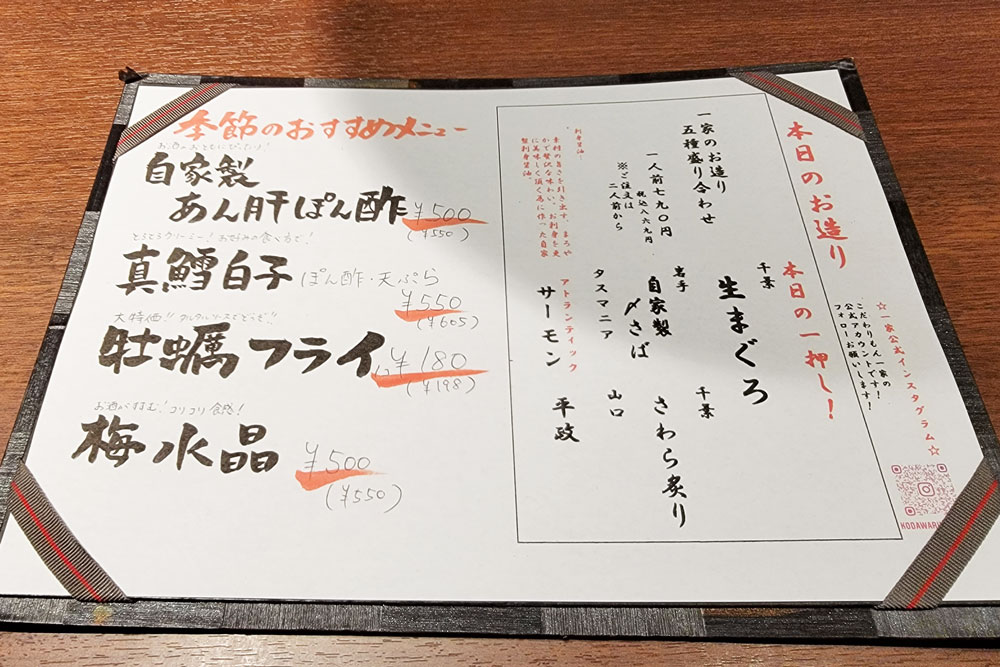 季節のおすすめメニュー
お酒のおともにぴったり!
自家製
あん肝ぽん酢 ¥500
(¥550)
とろとろクリーミー!お好みの食べ方で!
真鱈白子 ぽん酢・天ぷら
¥550
(¥605)
大特価!! タルタルソースでどうぞ!!
牡蠣フライ 1コ ¥180
(¥198)
お酒がすすむ!コリコリ食感!
梅水晶 ¥500
(¥550)
本日のお造り
本日の一押し!
☆一家公式インスタグラム☆
こだわりもん一家の
公式アカウントです!
フォローお願いします!
KODAWARI
一家のお造り
五種盛り合わせ
一人前七九〇円
税込八六九円
※ご注文は
二人前から
刺身醤油
素材の旨さを引き出す、まろや
かで贅沢な味わい。お刺身を更
に美味しく頂く為に作った自家
製刺身醤油。
千葉
生まぐろ
千葉
さわら炙り
岩手
自家製
〆さば
山口
平政
タスマニア
アトランティック
サーモン